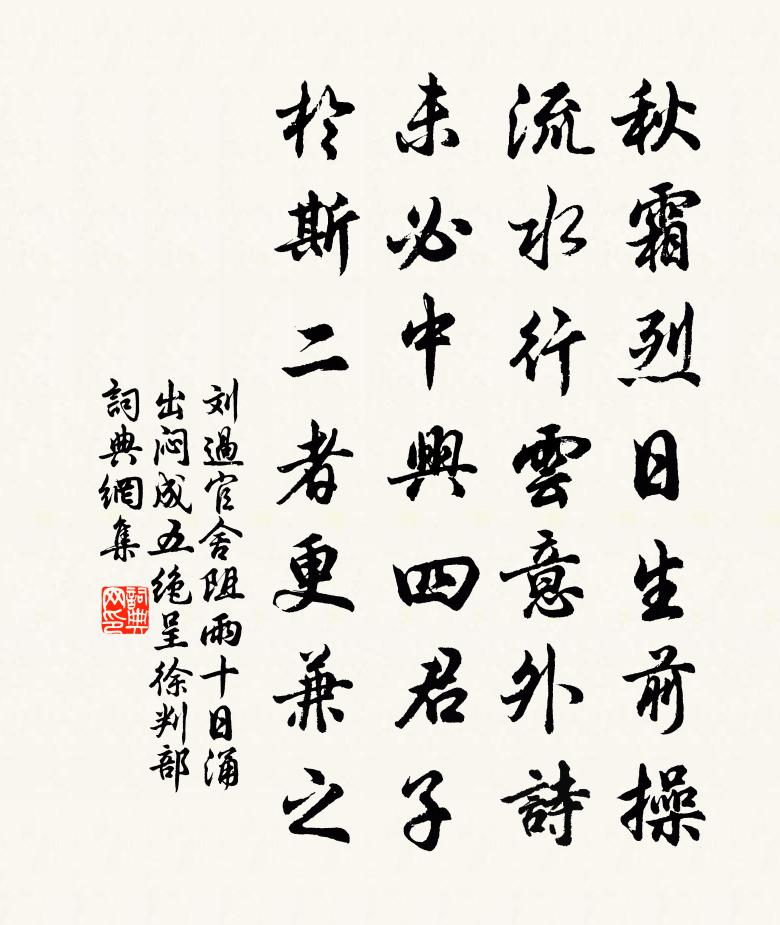 秋霜烈日生前操
流水行雲意外詩
未必中興四君子
於斯二者更兼之
刘過官舍阻雨十日涌
出闷成五绝呈徐判部
詞典網集
詞典
网印